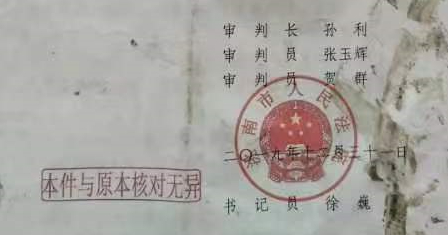 审 判 长 孙 利
审 判 员 张玉辉
审 判 员 贺 群
南市人民法
二〇一九年十二月三十一日
本件与原本核对无异
书 记 员 徐 巍